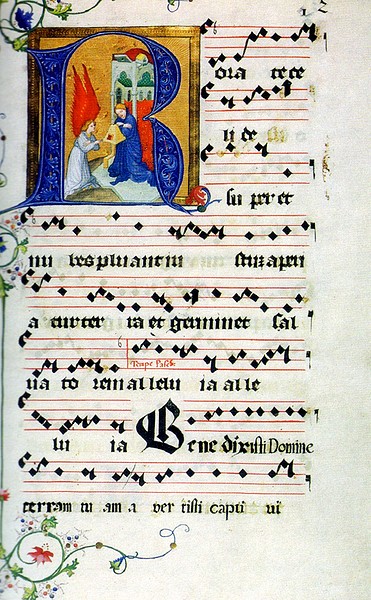 R
ora te ce
li de
su per et
nu bes pluant iu stuz aperi
a tur ter ra et germinet sal
Tempe Pasch
ua to rem allelu ia alle
lu ia Bene dixisti Domine
terram tu am a ver tisti capti vi